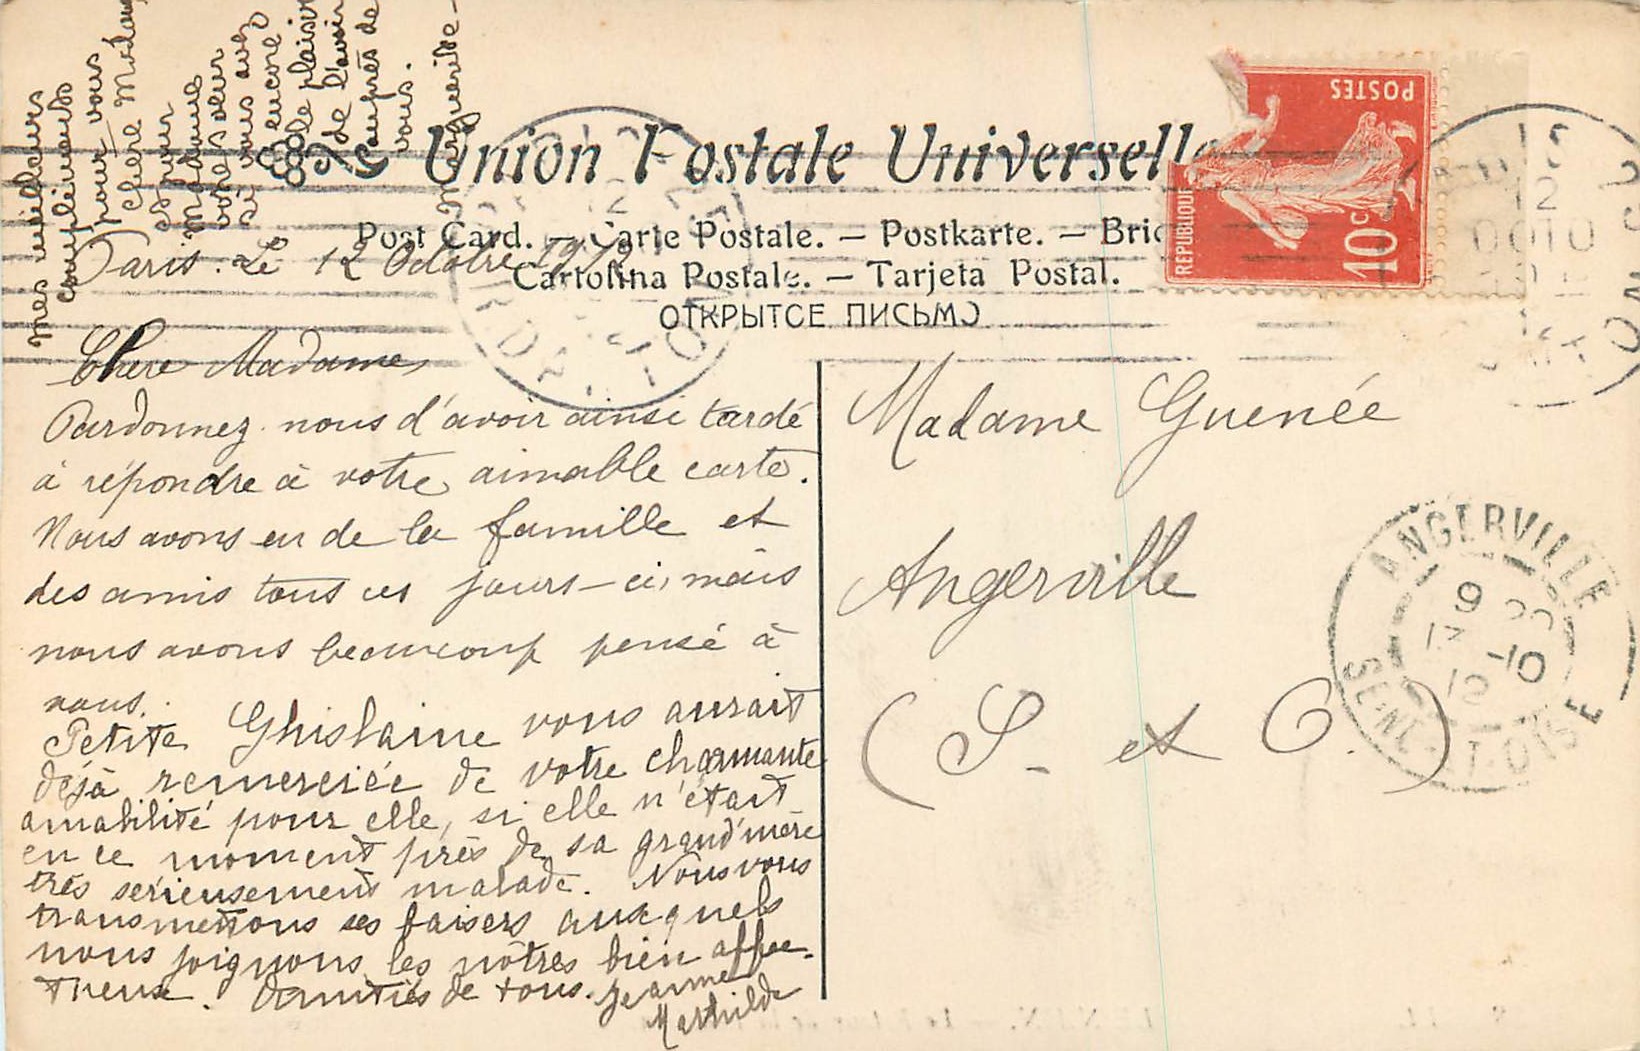 mes meilleurs
compliments
pour vous
chère Madame
et pour
Madame
votre sœur
si vous avez
encore
le plaisir
de l'avoir
auprès de
vous.
Marguerite -
Union Postale Universelle
Post Card. — Carte Postale. — Postkarte. — Bric
Cartolina Postale. — Tarjeta Postal.
ОТКРЫТСЕ ПИСЬМО
POSTES
REPUBLIQUE
10c
Paris. Le 12 Octobre 1912
Chère Madame
Pardonnez nous d'avoir ainsi tardé
à répondre à votre aimable carte.
Nous avons eu de la famille et
des amis tous ces jours-ci, mais
nous avons beaucoup pensé à
vous.
Petite Ghislaine vous aurait
déjà remerciée de votre charmante
amabilité pour elle, si elle n'était
en ce moment près de sa grand'mère
très sérieusement malade. Nous vous
transmettons ses baisers auxquels
nous joignons les nôtres bien affec-
tueux. Amitiés de tous. Jeanne
Mathilde
Madame Guenée
Angerville
(S. et O.)
ANGERVILLE
9
13 -10
12
SEINE-ET-OISE